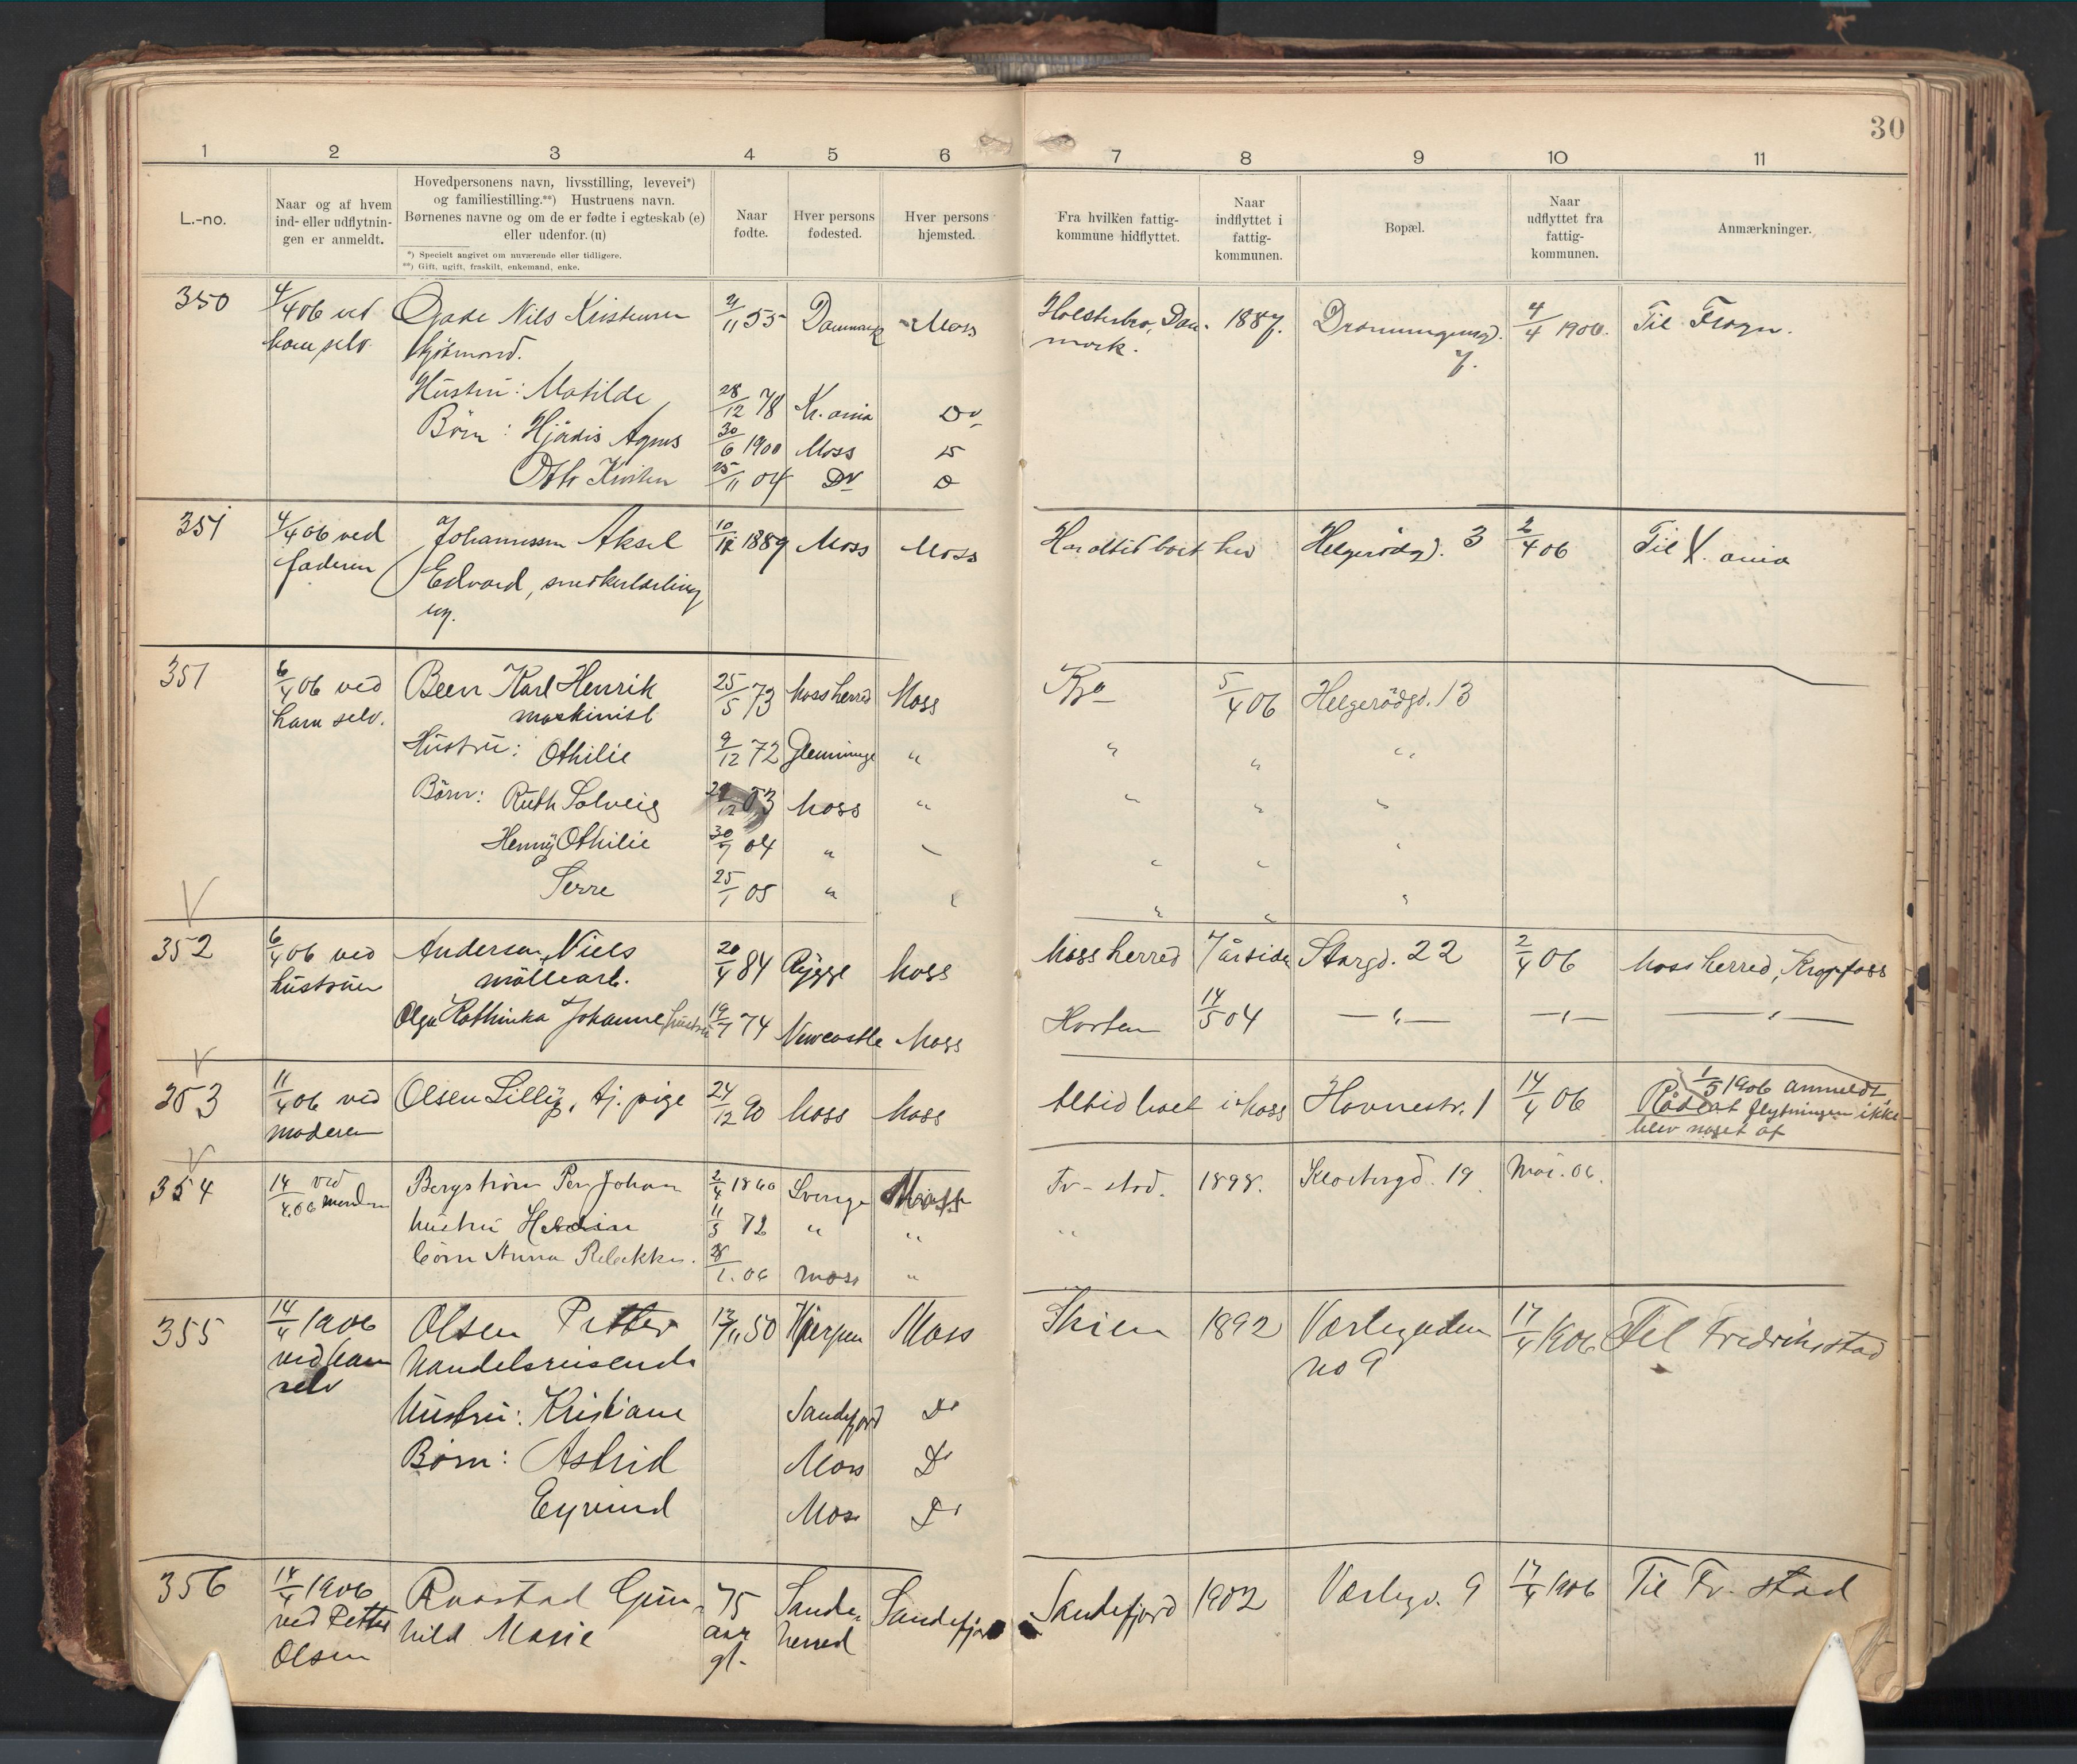 30
1 2 3 4 5 6 7 8 9 10 11
L.-no.
Naar og af hvem
ind- eller udflytnin-
gen er anmeldt.
Hovedpersonens navn, livsstilling, levevei*)
og familiestilling.**) Hustruens navn.
Børnenes navne og om de er fødte i egteskab (e)
eller udenfor. (u)
*) Specielt angivet om nuværende eller tidligere.
**) Gift, ugift, fraskilt, enkemand, enke.
Naar
fødte.
Hver persons
fødested.
Hver persons
hjemsted.
Fra hvilken fattig-
kommune hidflyttet.
Naar
indflyttet i
fattig-
kommunen.
Bopæl.
Naar
udflyttet fra
fattig-
kommunen.
Anmærkninger.
350 4/4 06 ved Nils Kristensen /11 55 Danmark Moss Holstebro, Dan- 1887. Dronningensgd. 4/4 1906. Til Frogn.
ham selv. mark. 7.
Hustru: Matilde 28/12 78 Kr.ania Do
Børn: Hjördis Agnes 30/6 1900 Moss
Otto Kristen 25/11 04 Do
351 4/4 06 ved Johannessen Aksel 10/12 1889 Moss Moss Har altid boet her Helgerödgd. 3 2/4 06 Til X.ania
faderen Edvard, smedkerlærling
ug.
351 6/4 06 ved Been Karl Henrik 25/5 73 Moss herred Moss 5/4 06 Helgerödgd. 13
ham selv. maskinist
Hustru: Othilie 9/12 72 Glemminge " " " "
Börn: Ruth Solveig 29/12 03 Moss " " " "
Henny Othilie 30/7 04 " " " " "
25/1 05 " " " " "
352 6/4 06 ved Andersen, Niels 20/4 84 Rygge Moss Moss herred 7 år siden Storgd. 22 2/4 06 Moss herred, Krapfoss
hustruen möllearb.
Olga Kathinka Johanne, hustru 19/7 74 Newcastle Moss Horten 14/5 04 — " — — " — — " —
353 11/4 06 ved Olsen Lilly, tj. pige 24/12 90 Moss Moss Altid boet i Moss Havnestr. 1 14/4 06 1/5 1906 anmeldt
moderen at flytningen ikke
blev noget af
354 14/4 06 ved Bergström Per Johan 2/4 1860 Sverige Moss Fr-stad. 1898. Klostergd. 19 Mai. 06.
manden
hustru 11/3 72 " " "
börn Anna Rebekka. 28/1. 06 Moss "
355 14/4 1906 Olsen Petter 13/11 50 Gjerpen Moss Skien 1892 Værlegaden 17/4 1906 Til Fredrikstad
ved ham handelsreisende no 9
selv
Hustru: Kristiane Sandefjord Do
Børn: Astrid Moss Do
Eyvind Moss Do
356 14/4 1906 Raastad Gun- 75 Sande- Sandefjord Sandefjord 1902 Værlegd. 9 17/4 1906 Til Fr-stad
ved Petter hild Marie aar herred
Olsen gl.